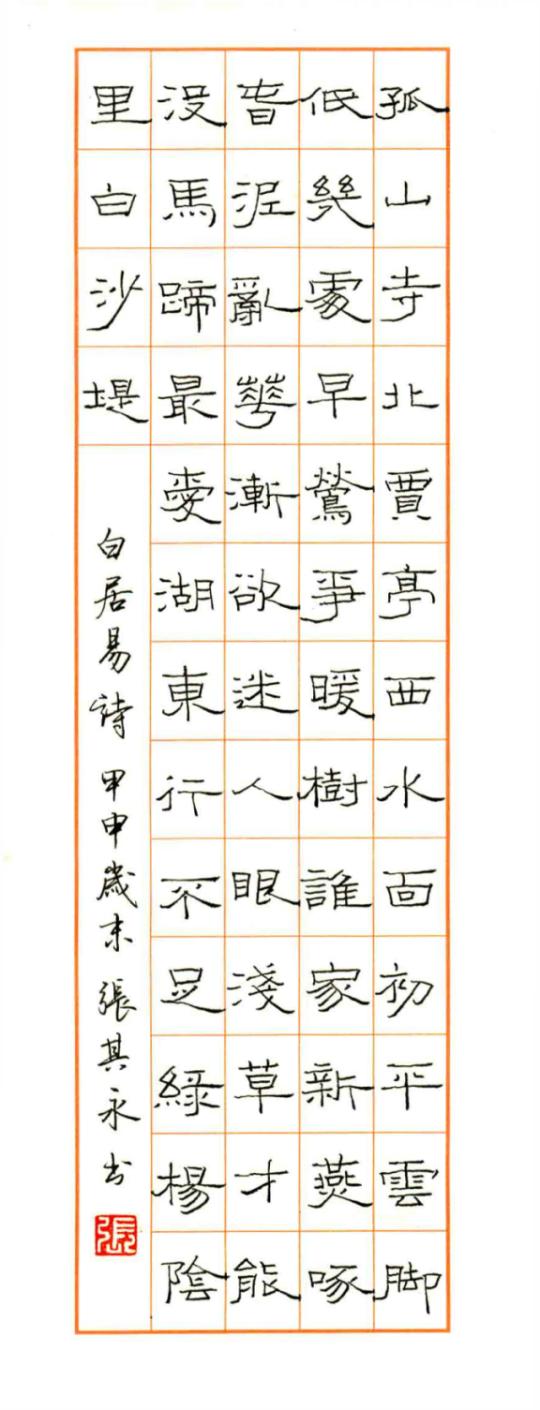 孤山寺北賈亭西水面初平雲脚
低幾處早鶯爭暖樹誰家新燕啄
春泥亂花漸欲迷人眼淺草才能
沒馬蹄最愛湖東行不足綠楊陰
里白沙堤
白居易詩 甲申歲末 張其永书
張